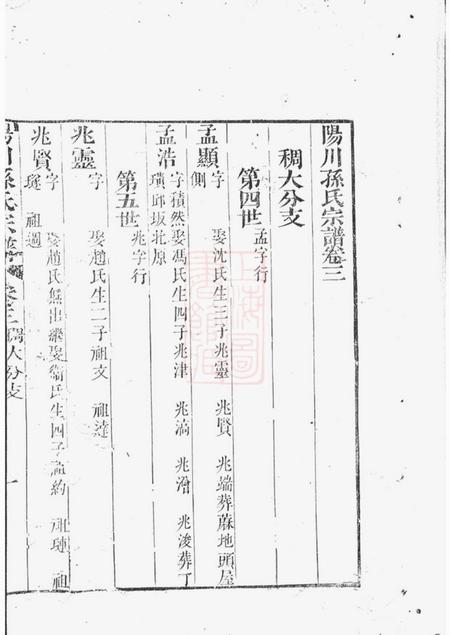 陽川孫氏宗譜卷三
稠大分支
第四世 孟字行
孟顯 字 娶沈氏生三子兆靈 兆賢 兆端葬蔴地頭屋
側
孟浩 字積然娶馮氏生四子兆津 兆滈 兆澮 兆浚葬丁
璜邱坂北原
第五世 兆字行
兆靈 字 娶趙氏生二子祖文 祖達
兆賢 字 娶趙氏無出繼娶衛氏生四子祖約 祖璉 祖
璲 祖週
陽川孫氏宗譜 卷三稠大分支 一